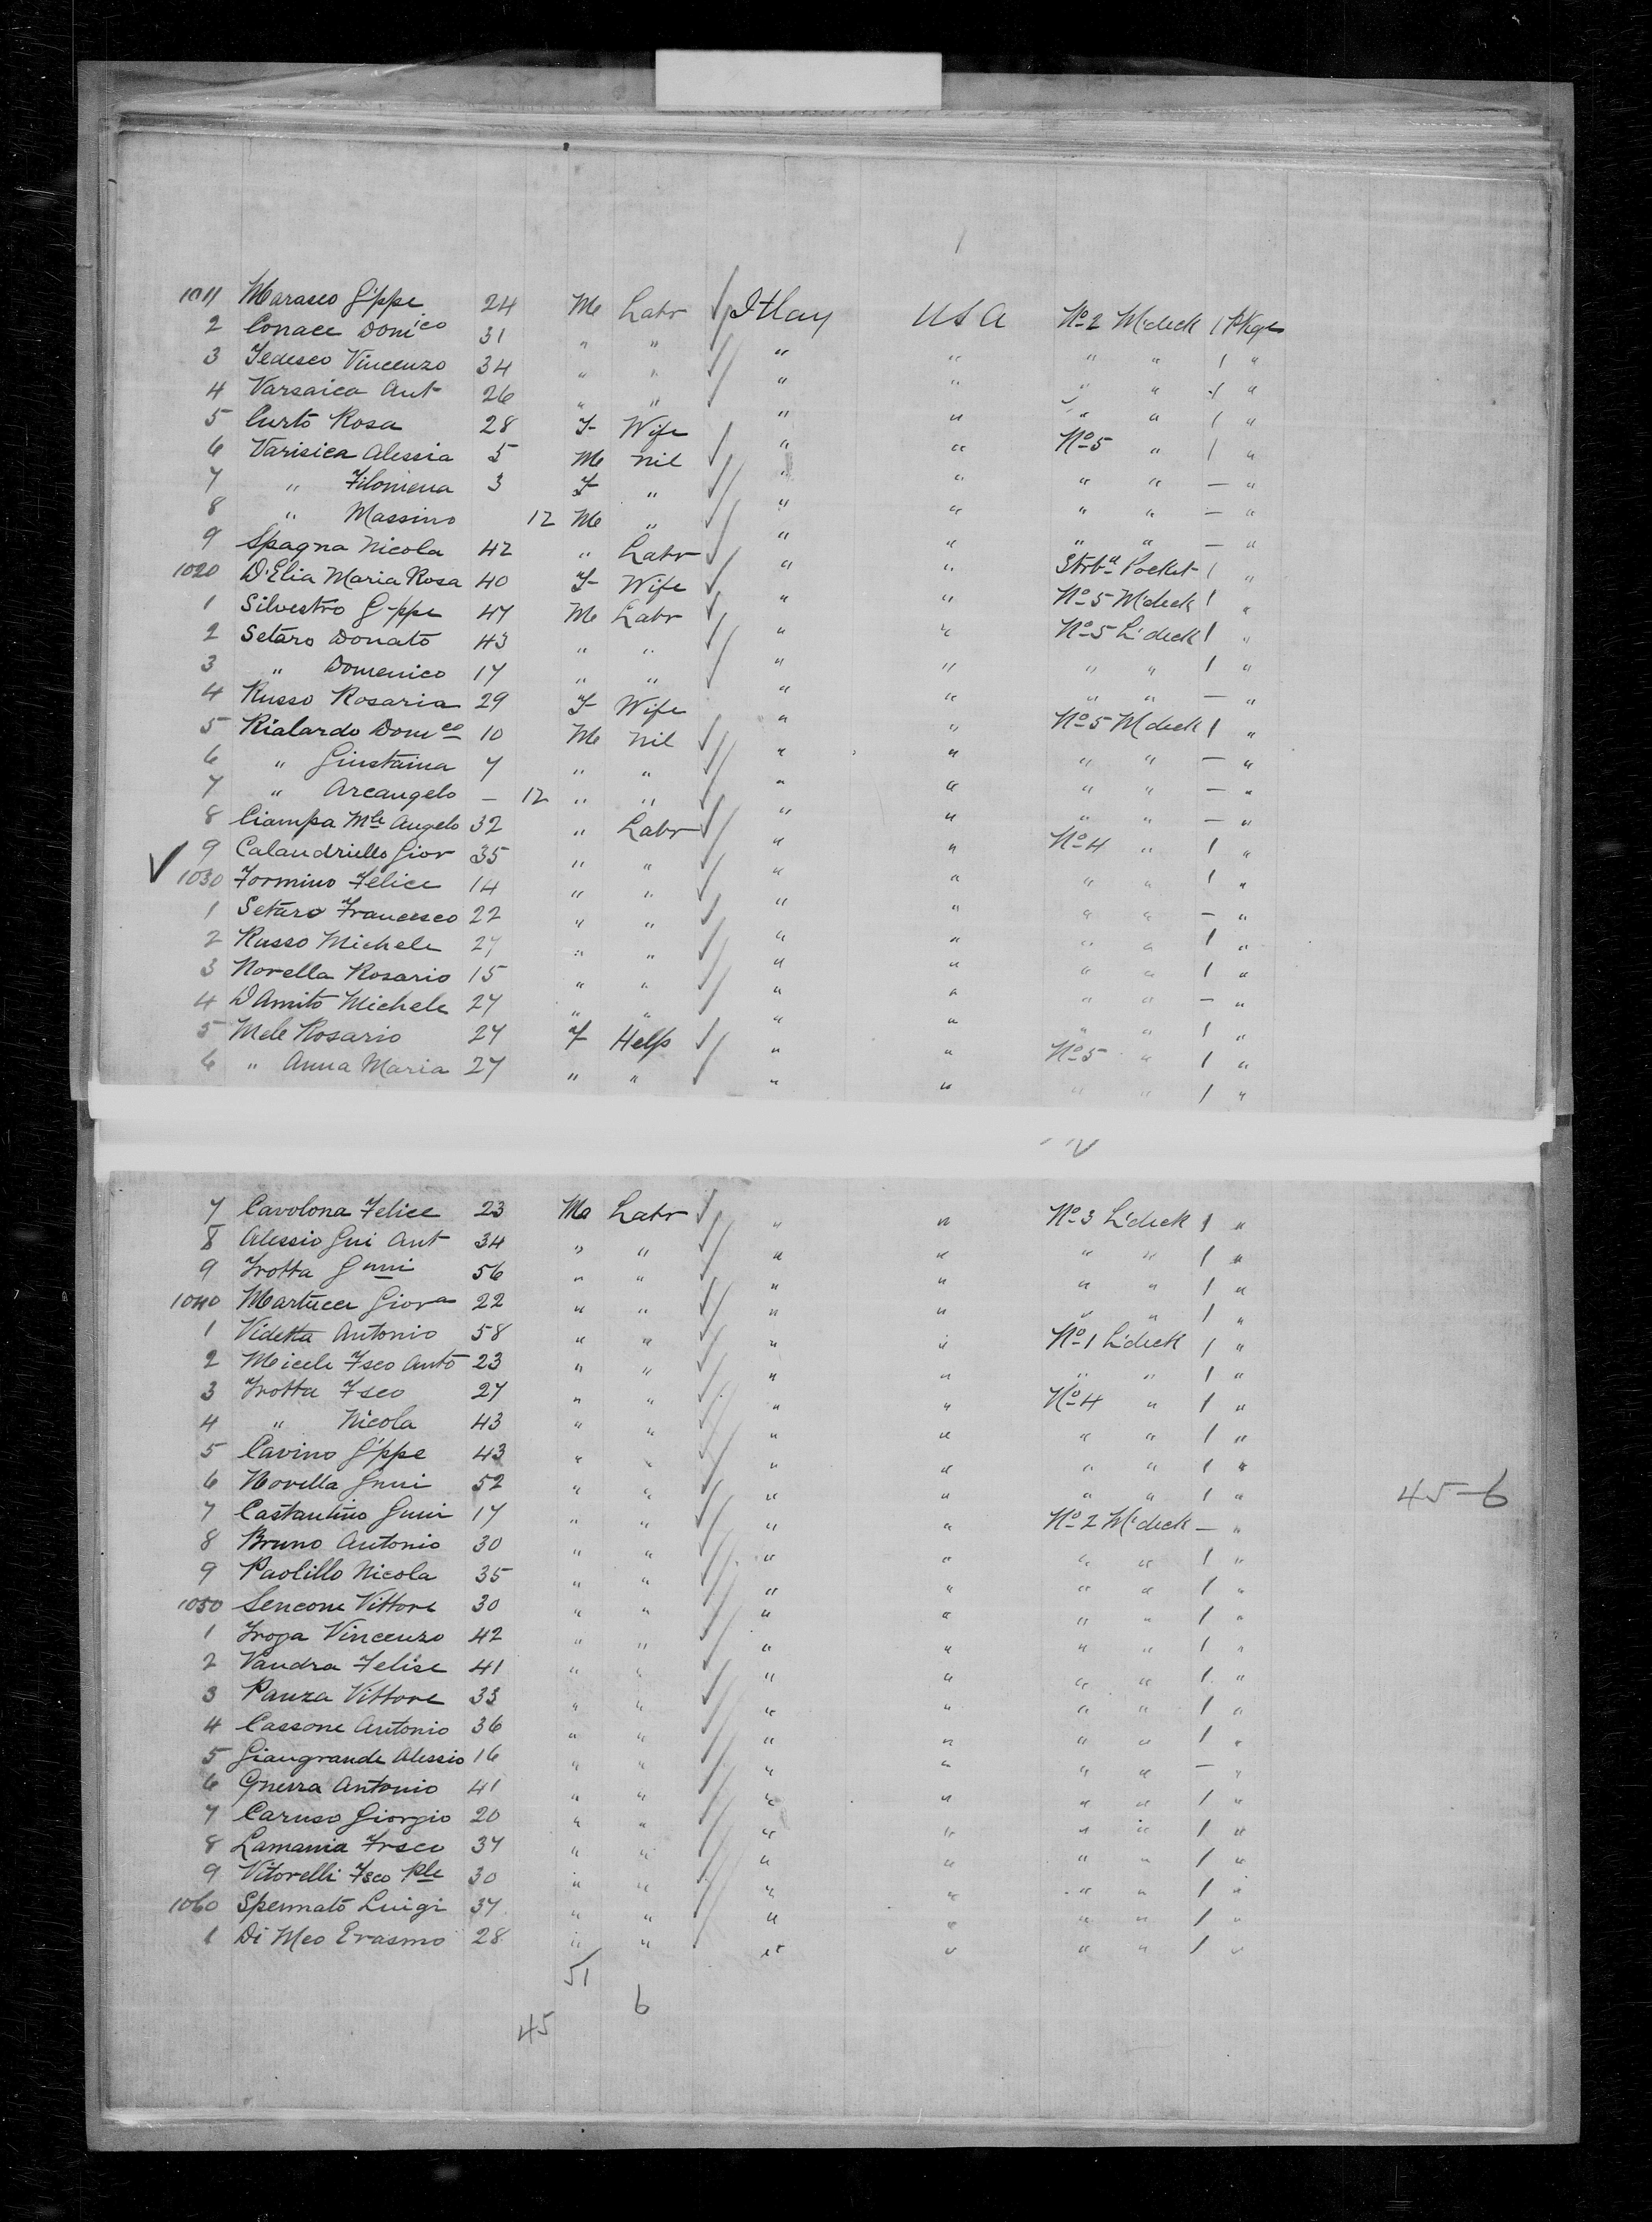 1011 Marasco G'ppe 24 Me Labr Itlay USA No 2 M'deck 1 Pkge
2 Conace Domico 31 " " " " " " 1 "
3 Tedesco Vincenzo 34 " " " " " " 1 "
4 Varsaica Ant 26 " " " " " " 1 "
5 Curto Rosa 28 F Wife " " No 5 " 1 "
6 Varisica Alessia 5 Me nil " " " " — "
7 " Filomena 3 F " " " " " — "
8 " Massino 12 Me " " " " " — "
9 Spagna Nicola 42 " Labr " " Strbd Pocket 1 "
1020 D'Elia Maria Rosa 40 F Wife " " No 5 M'deck 1 "
1 Silvestro G'ppe 47 Me Labr " " No 5 L'deck 1 "
2 Setaro Donato 43 " " " " " " 1 "
3 " Domenico 17 " " " " " " — "
4 Russo Rosaria 29 F Wife " " No 5 M'deck 1 "
5 Rialardo Domco 10 Me nil " " " " — "
6 " Giustaina 7 " " " " " " — "
7 " Arcangelo — 12 " " " " " " — "
8 Ciampa Mle Angelo 32 " Labr " " No 4 " 1 "
9 Calandriello Giov 35 " " " " " " 1 "
1030 Formino Felice 14 " " " " " " — "
1 Setaro Francesco 22 " " " " " " 1 "
2 Russo Michele 27 " " " " " " 1 "
3 Novella Rosario 15 " " " " " " — "
4 D Amito Michele 27 " " " " " " 1 "
5 Mele Rosario 27 F Help " " No 5 " 1 "
6 " Anna Maria 27 " " " " " " 1 "
7 Cavolona Felice 23 Me Labr " " No 3 L'deck 1 "
8 Alessio Gui Ant 34 " " " " " " 1 "
9 Trotta Gnni 56 " " " " " " 1 "
1040 Martucci Giova 22 " " " " " " 1 "
1 Videtta Antonio 58 " " " " No 1 L'deck 1 "
2 Miceli Fsco Anto 23 " " " " " " 1 "
3 Trotta Fsco 27 " " " " No 4 " 1 "
4 " Nicola 43 " " " " " " 1 "
5 Cavino G'ppe 43 " " " " " " 1 "
6 Novella Gnni 52 " " " " " " 1 "
45-6
7 Castantino Gnni 17 " " " " No 2 M'deck — "
8 Bruno Antonio 30 " " " " " " 1 "
9 Paolillo Nicola 35 " " " " " " 1 "
1050 Sencone Vittore 30 " " " " " " 1 "
1 Troga Vincenzo 42 " " " " " " 1 "
2 Vandra Felise 41 " " " " " " 1 "
3 Panza Vittore 33 " " " " " " 1 "
4 Cassone Antonio 36 " " " " " " 1 "
5 Giangrande Alessio 16 " " " " " " — "
6 Guerra Antonio 41 " " " " " " 1 "
7 Caruso Giorgio 20 " " " " " " 1 "
8 Lamania Frsco 37 " " " " " " 1 "
9 Vitorelli Fsco Ple 30 " " " " " " 1 "
1060 Spermato Luigi 37 " " " " " " 1 "
1 Di Meo Erasmo 28 " " " " " " 1 "
51
6
45